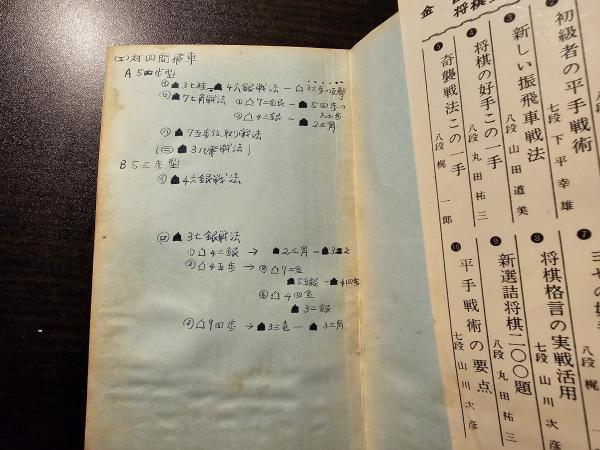 (エ)対四間飛車
A 5四歩型
㋑☗3七桂、☗4六銀戦法―☖3六歩の反撃
㋺☗7七角戦法 ①☖7二金銀―☗5四歩の
②☖4二銀―☗2三角
㋩☗7五歩位取り戦法
(㊁)☗3八飛戦法)
B 5三歩型
㋑☗4六銀戦法
㋺☗3七銀戦法
①☖4二銀→☗2二角―☗3
②☖4五歩→ⓐ☖7二金
☗5五銀―☗4四歩
ⓑ☖4四金
☗3二銀
③☖9四歩→☗3三竜―☗3三角
金
将棋
初級者の平手戦術
七段 下平幸雄
❸ 新しい振飛車戦法
八段 山田道美
❹ 将棋の好手この一手
八段 丸田祐三
❺ 奇襲戦法この一手
八段 梶一郎
❼
八段
❽ 将棋格言の実戦活用
七段 山川次彦
❾ 新選詰将棋二〇〇題
八段 丸田祐三
❿ 平手戦術の要点
七段 山川次彦